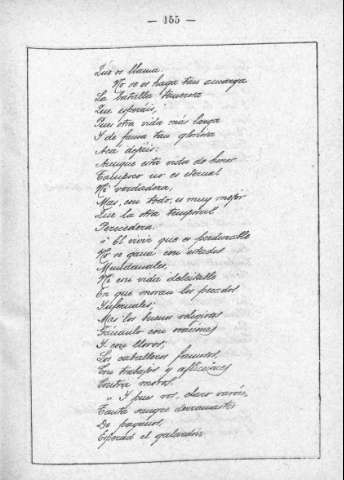 — 155 —
Que os llama.
No se os haga tan amarga
La batalla temerosa
Que esperáis,
Pues otra vida más larga
I de fama tan gloriosa
Acá dejáis:
Aunque esta vida de honor
Tampoco no es eternal
Ni verdadera,
Mas, con todo, es muy mejor
Que la otra temporal
Perecedera.
" El vivir que es perdurable
No se gana con estados
Mundanales,
Ni con vida deleitable
En que moran los pecados
Infernales;
Mas los buenos religiosos
Gánanlo con oraciones
I con lloros;
Los caballeros famosos,
Con trabajos y aflicciones
Contra moros.
" I pues vos, claro varón,
Tanta sangre derramasteis
De paganos,
Esperad el galardón